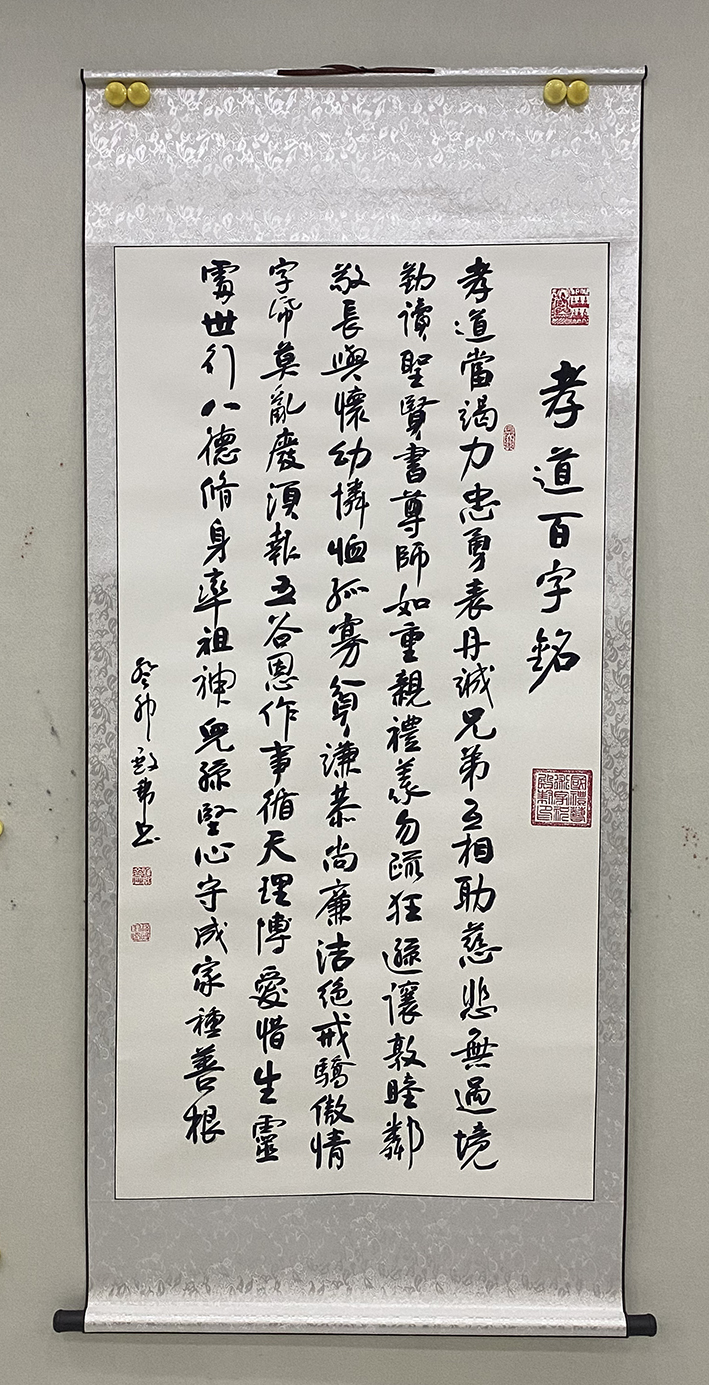 孝道百字銘
孝道當竭力忠勇表丹誠兄弟互相助慈悲無過境
勤讀聖賢書尊師如重親禮義勿疏狂遜讓敦睦鄰
敬長與懷幼憐恤孤寡貧謙恭尚廉洁絕戒驕傲情
字帋莫亂廢須報五谷恩作事循天理博愛惜生靈
處世行八德脩身率祖神兒孫堅心守成家種善根
癸卯书